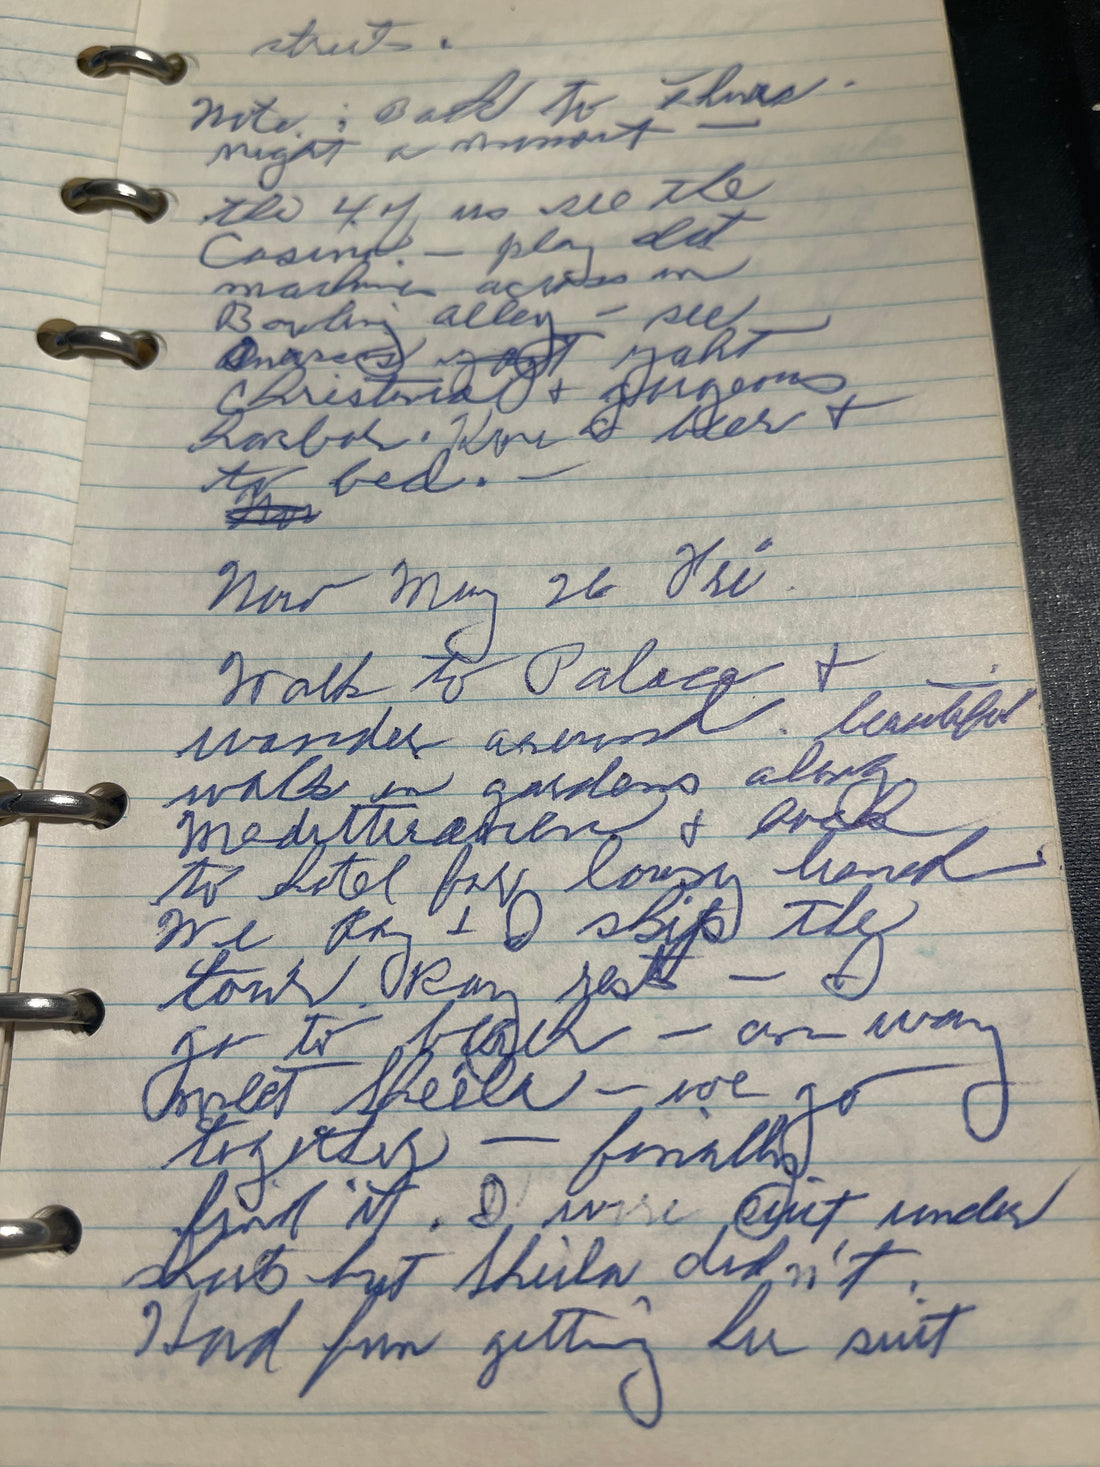 streets.
Note: Back to Thurs.
night a moment —
the 4 of us see the
Casino. — play slot
machines across in
Bowling alley — see
Onassis yaht
Christina & gorgeous
harbor. Have a beer &
to bed. —
Now May 26 Fri.
Walk to Palace &
wander around. beautiful
walk in gardens along
Meditteranean & back
to hotel for lousy lunch.
We Ray & I skip the
tour. Ray rests — I
go to beach — on way
meet Sheila — we go
together — finially
find it. I wore suit under
shorts but Sheila didn't.
Had fun getting her suit